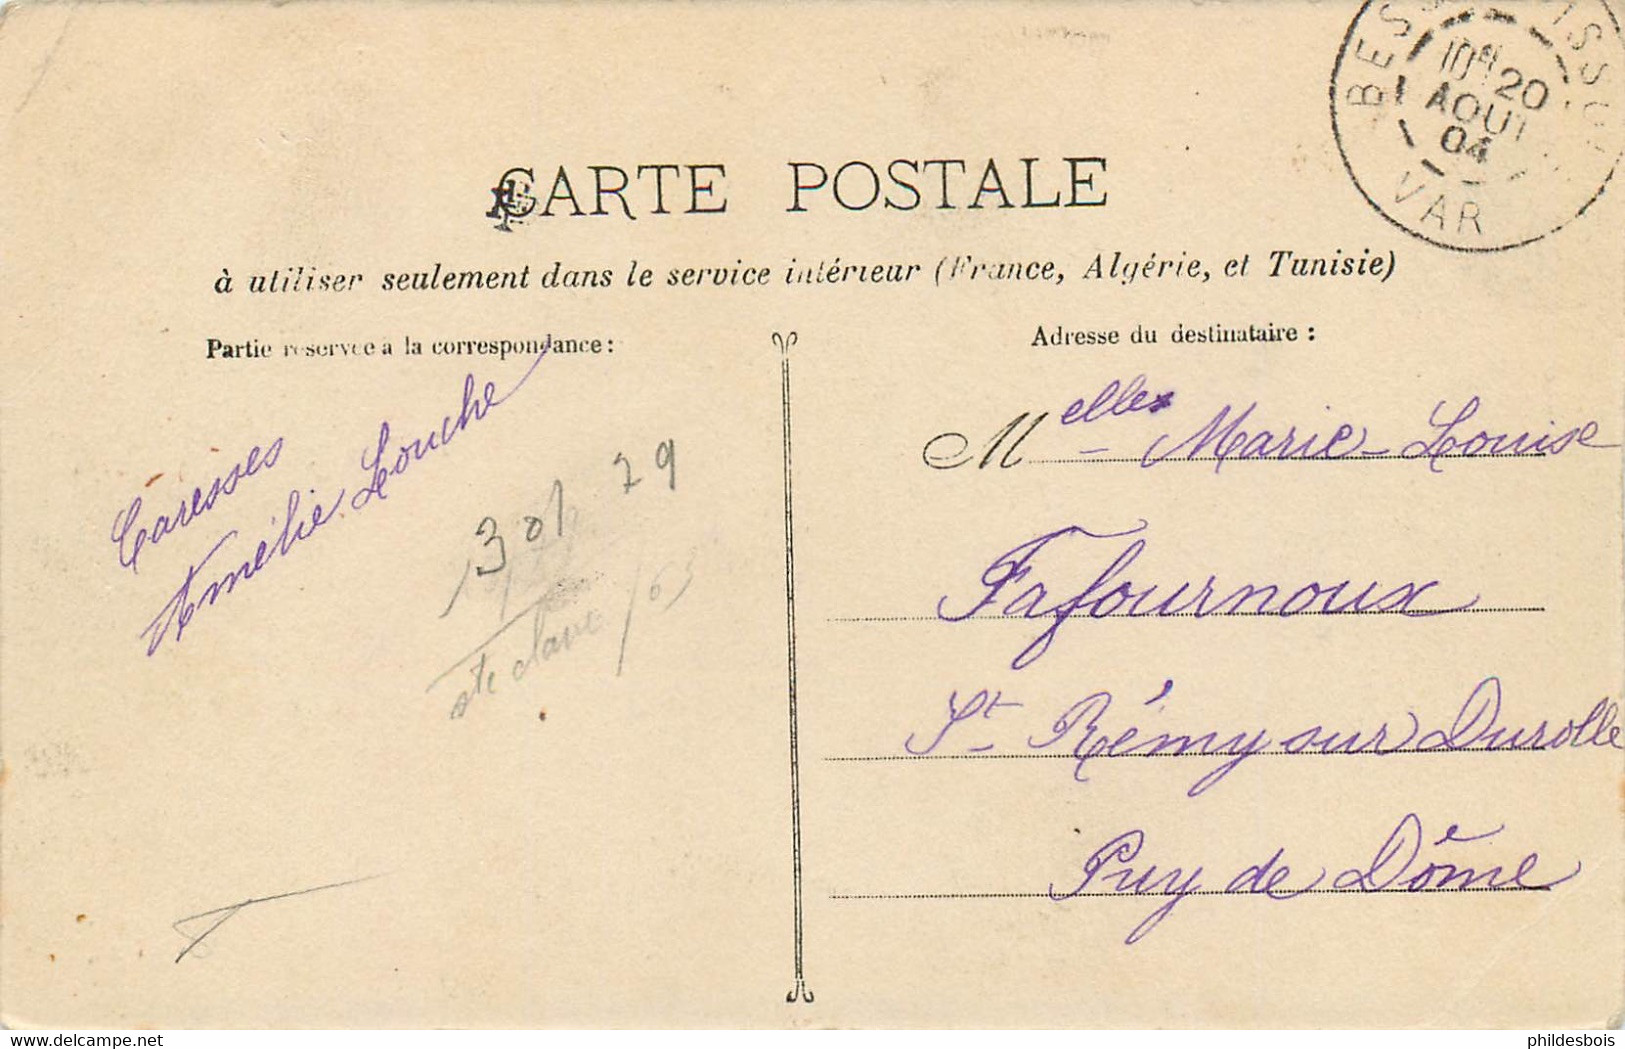 CARTE POSTALE
à utiliser seulement dans le service intérieur (France, Algérie, et Tunisie)
Partie réservée à la correspondance:
Caresses
Amélie Louche
301 29
ste claire /63
Adresse du destinataire :
Melle Marie-Louise
Fafournoux
St Rémy sur Durolle
Puy de Dôme
20
AOUT
04
VAR
delcampe.net
phildesbois